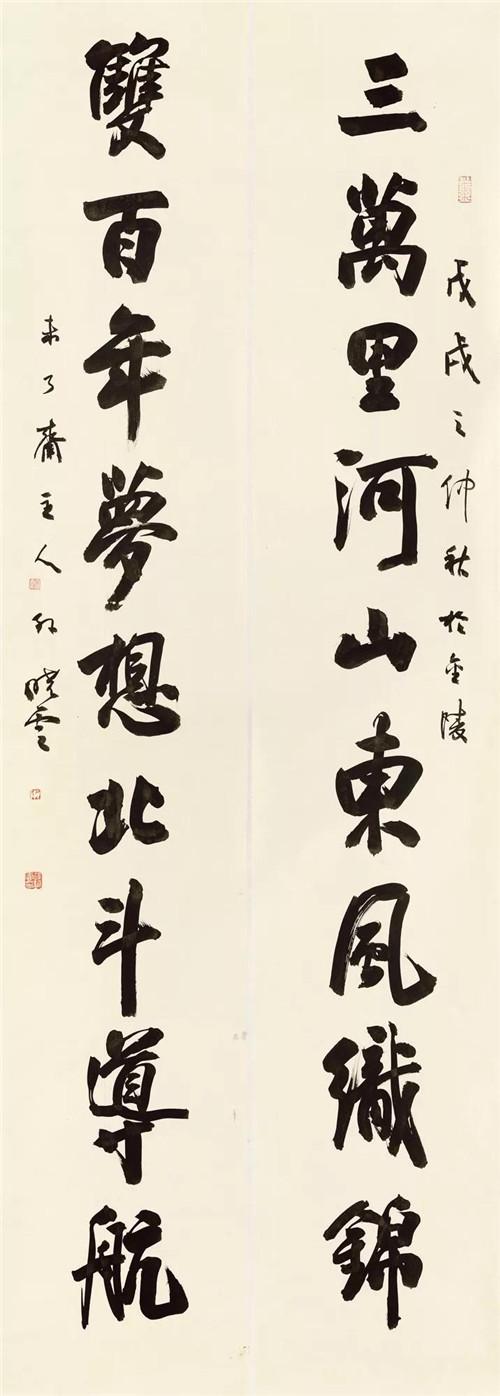 三萬里河山東風織錦
戊戌之仲秋於金陵
雙百年夢想北斗導航
未了齋主人孫曉雲